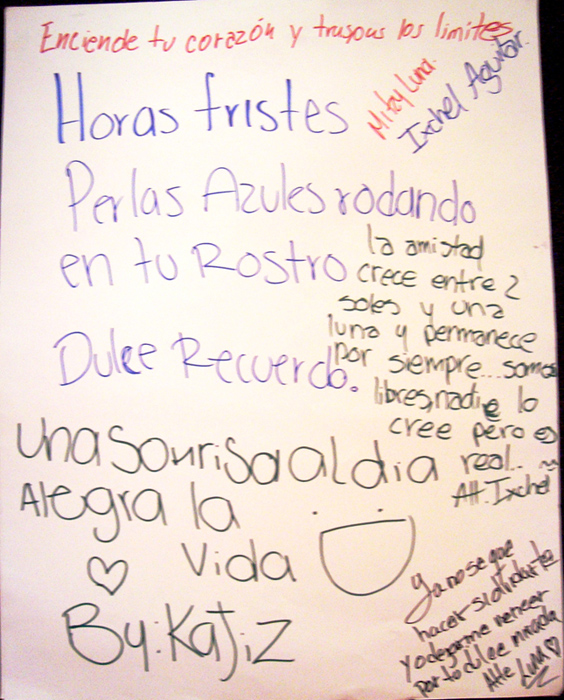 Enciende tu corazón y traspas los limites
Mitzy Luna.
Ixchel Aguilar.
Horas tristes
Perlas Azules rodando
en tu Rostro
Dulce Recuerdo.
la amistad
crece entre 2
soles y una
luna y permanece
por siempre... somos
libres, nadie lo
cree pero es
real..
Att. Ixchel
Una Sonrisa al dia
Alegra la
Vida
By: Kajiz
Ya no se que
hacer si olvidarte
yo dejarme vencer
por tu dulce mirada
Atte Luna